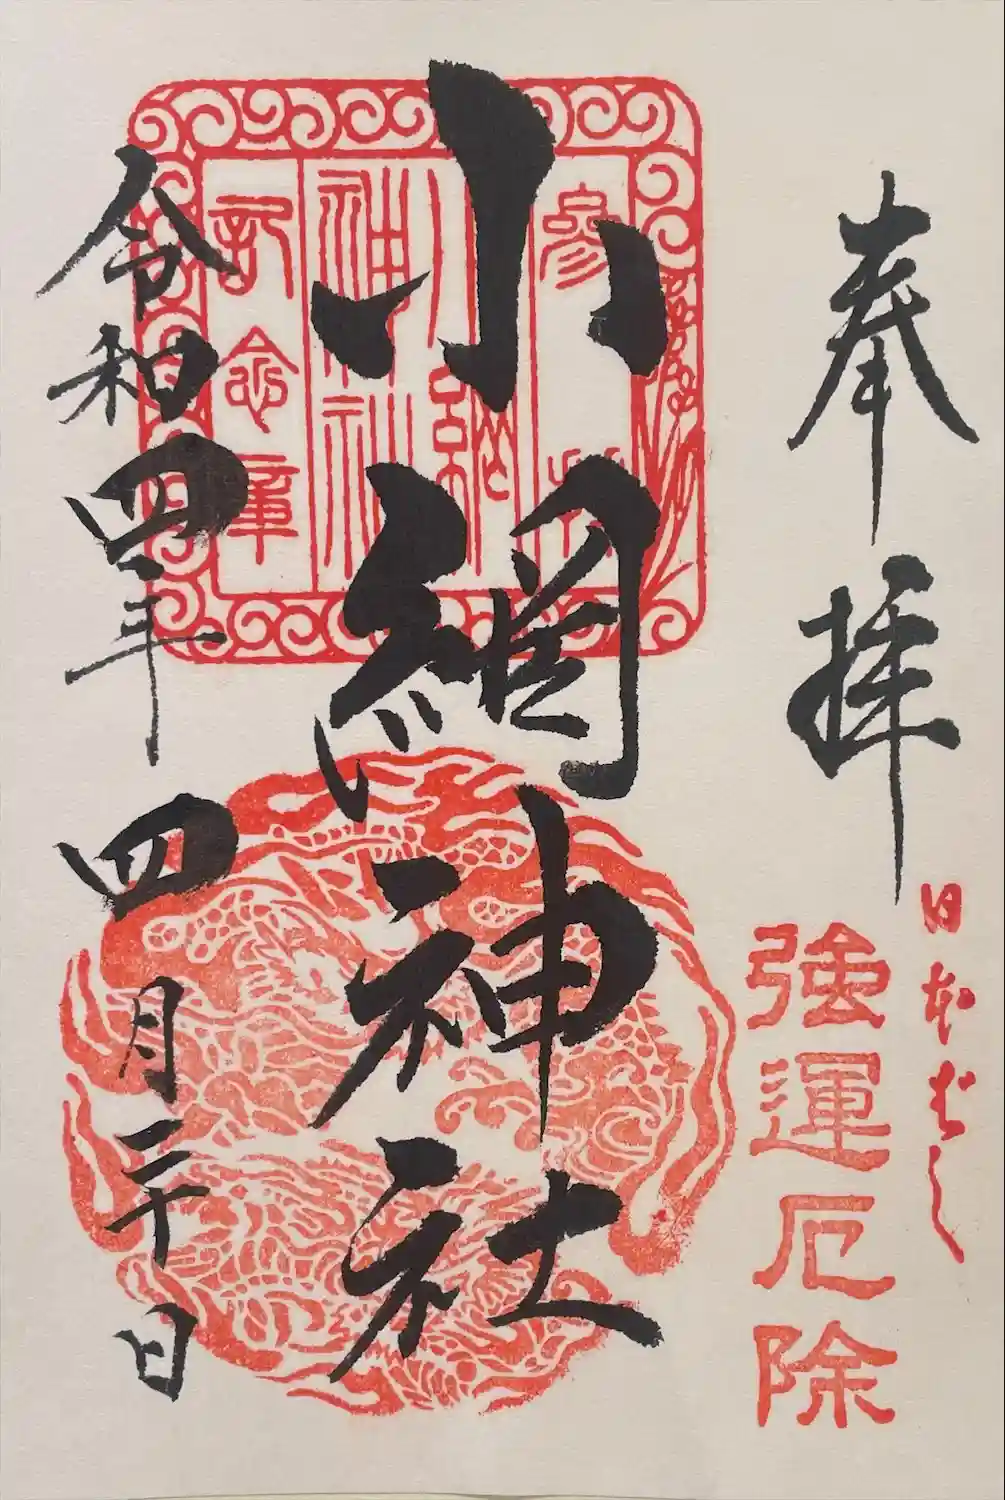 奉拝
日本ばし
強運厄除
小網神社
參拝
小網
神社
記念章
令和四年四月二十日